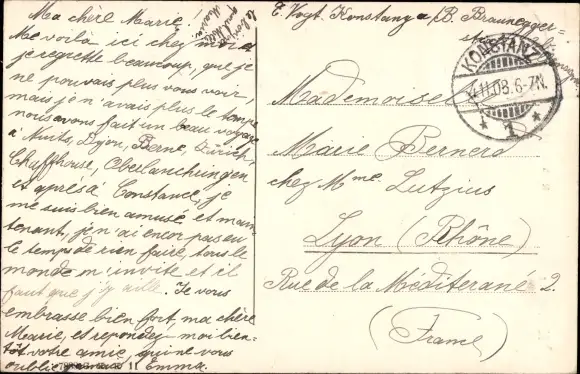 Ma chère Marie!
Me voilà ici chez moi
je regrette beaucoup, que je
ne pouvais plus vous voir,
mais j'en avais plus le temps
nous avons fait un beau voyage
à Nuits, Dyon, Berne, Zürich,
Chaffhouse, Oberlanchungen
et après à Constance, je
me suis bien amusé et main
tenant, je n'ai encor pas eu
le temps de rien faire, tous le
monde m'invite et il
faut que j'y aille. Je vous
embrasse bien fort, ma chère
Marie, et répondez-moi bien-
tôt votre amie, qui ne vous
oublie jamais Emma.
E. Vogt. Konstanz a/B. Braunegger-
KONSTANZ
4.11.08.6-7N.
* 1 *
Mademoiselle
Marie Bernero
chez Mme Lutzius
Lyon (Rhône)
Rue de la Méditerané 2.
(France)